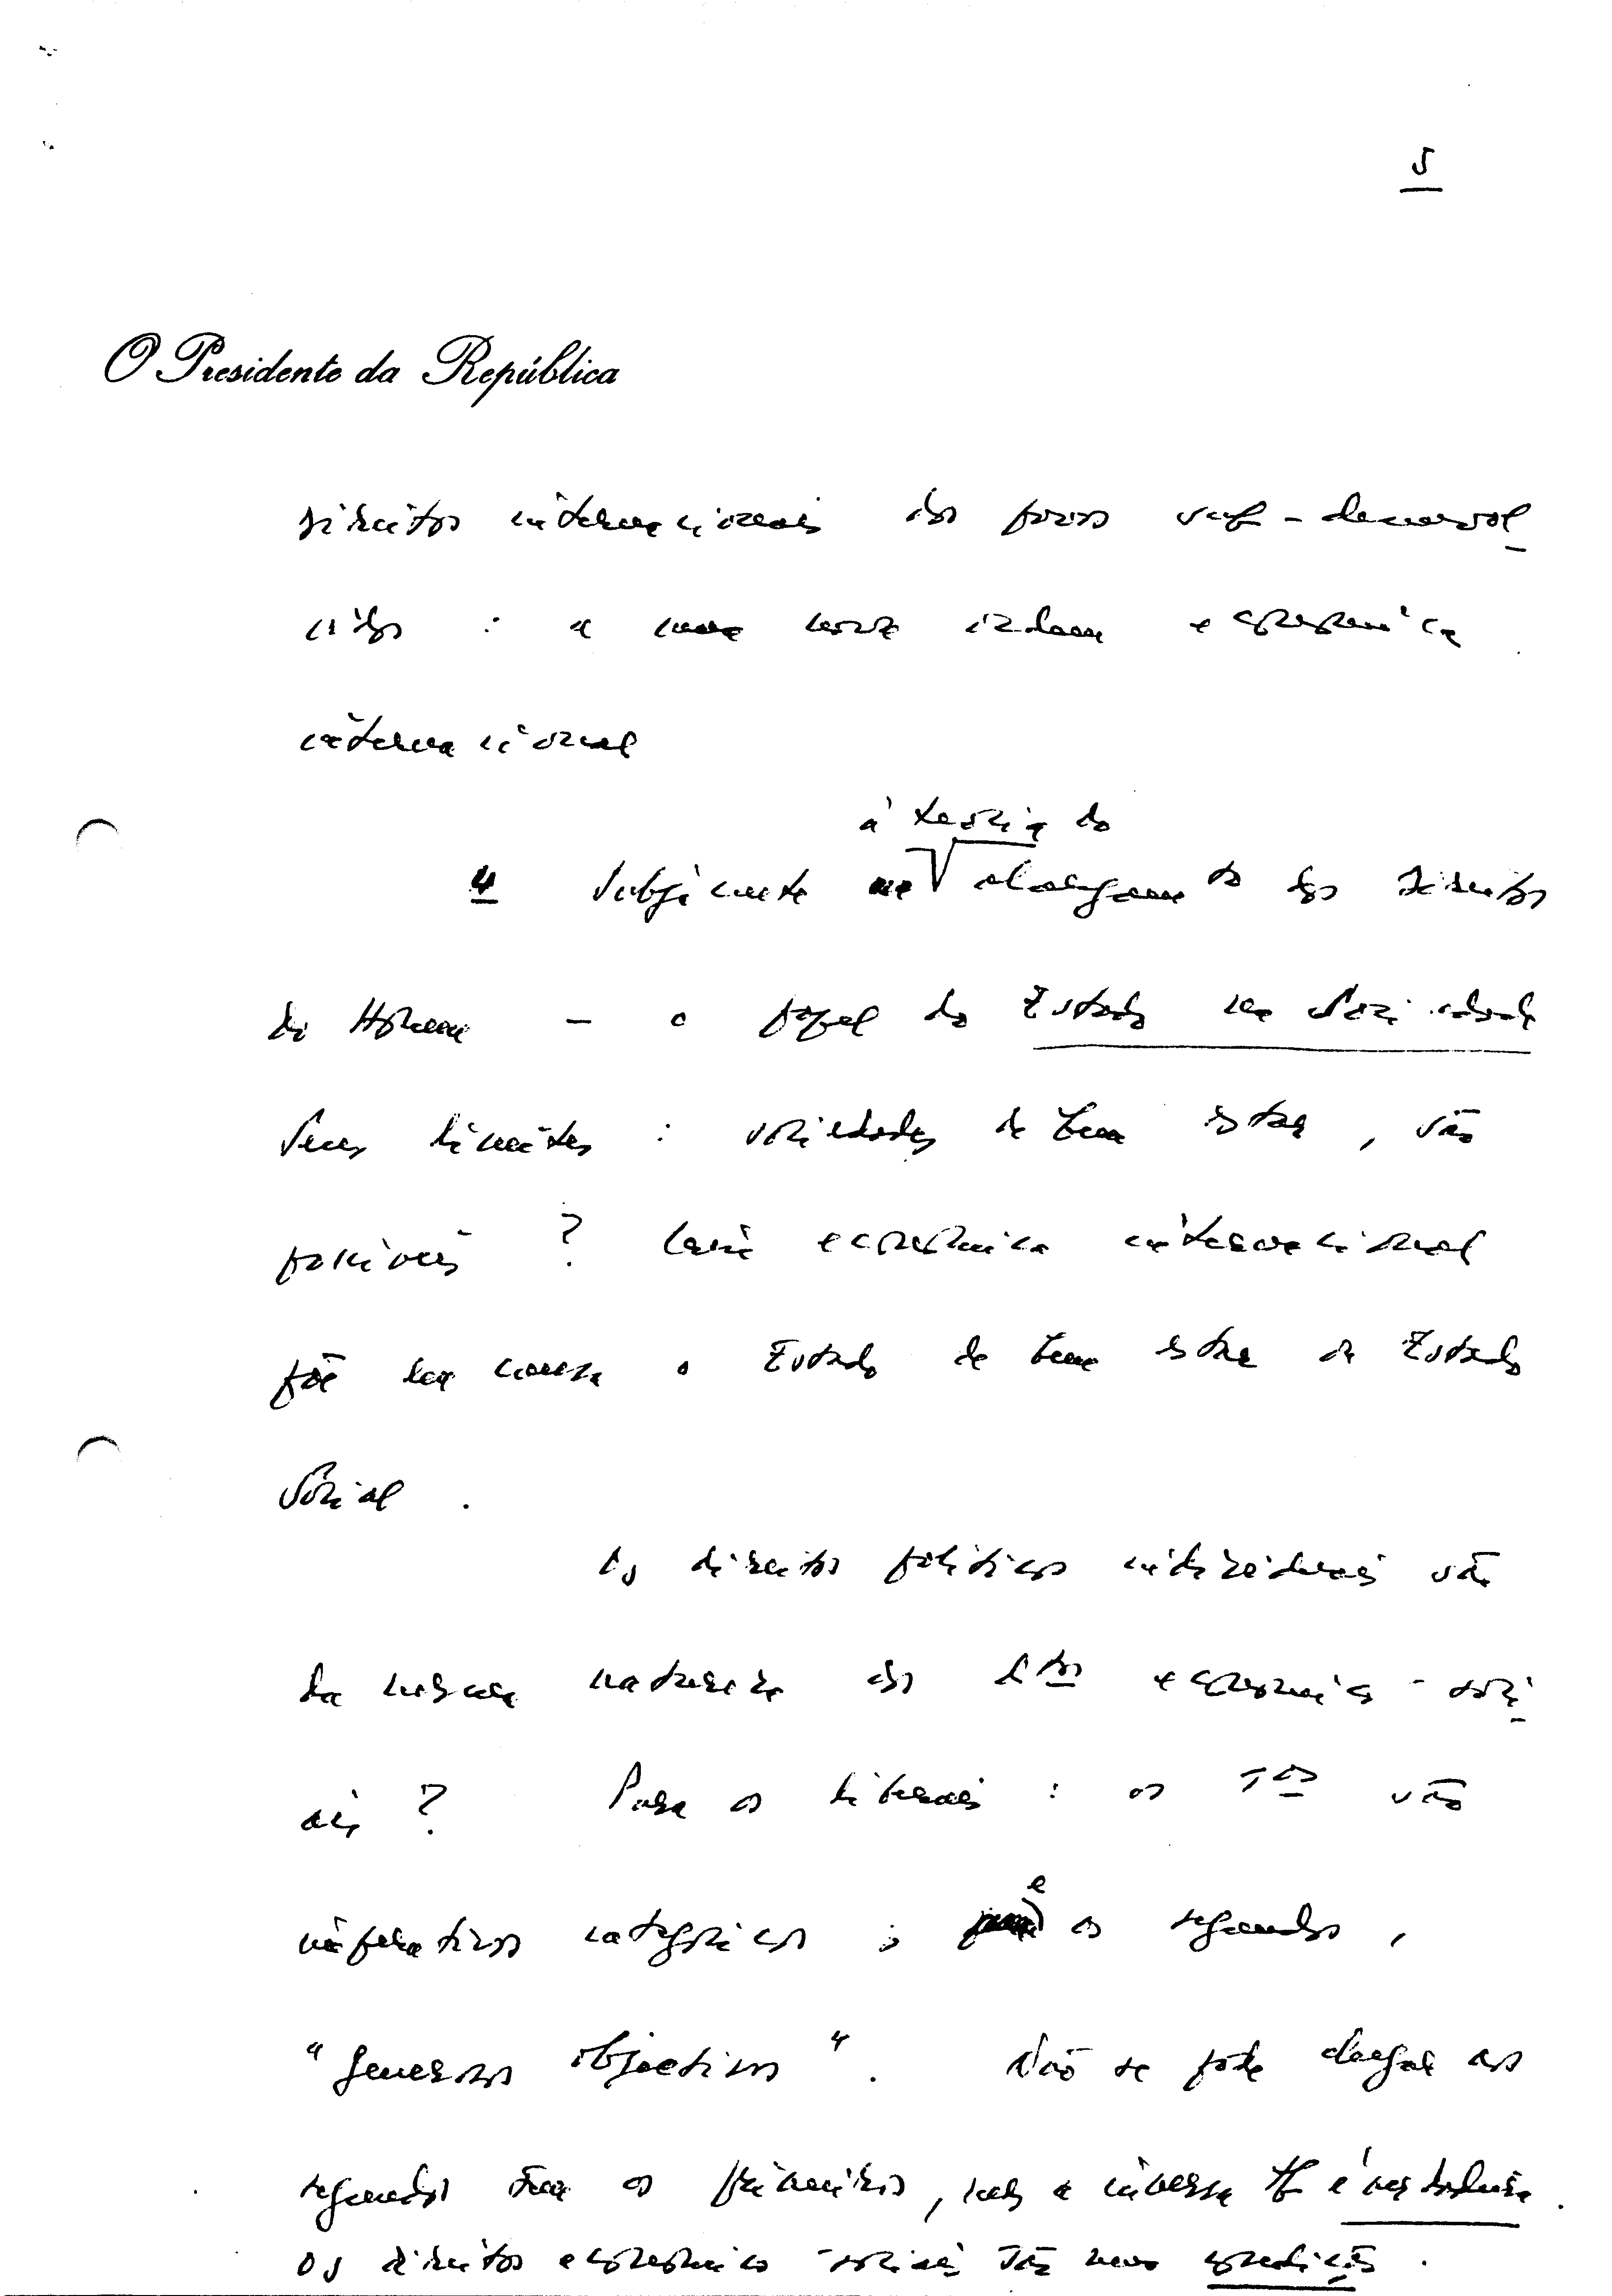 5
O Presidente da República
direitos internacionais dos povos sub-desenvol
vidos : a nova ordem económica
internacional
à teoria do
4 Subjacente alargamento dos direitos
do Homem — o papel do Estado na Sociedade
Seus limites : sociedades de bem estar, são
possíveis ? Crise económica internacional
põe em causa o Estado de bem estar ou Estado
Social .
Os direitos políticos individuais são
da mesma natureza dos dtos económico-soci
ais ? Para os liberais : os 1os são
imperativos categóricos ; e os segundos,
"generosos objectivos". Não se pode chegar aos
segundos sem os primeiros, mas a inversa tb é verdadeira.
Os direitos económico-sociais são uma condição.